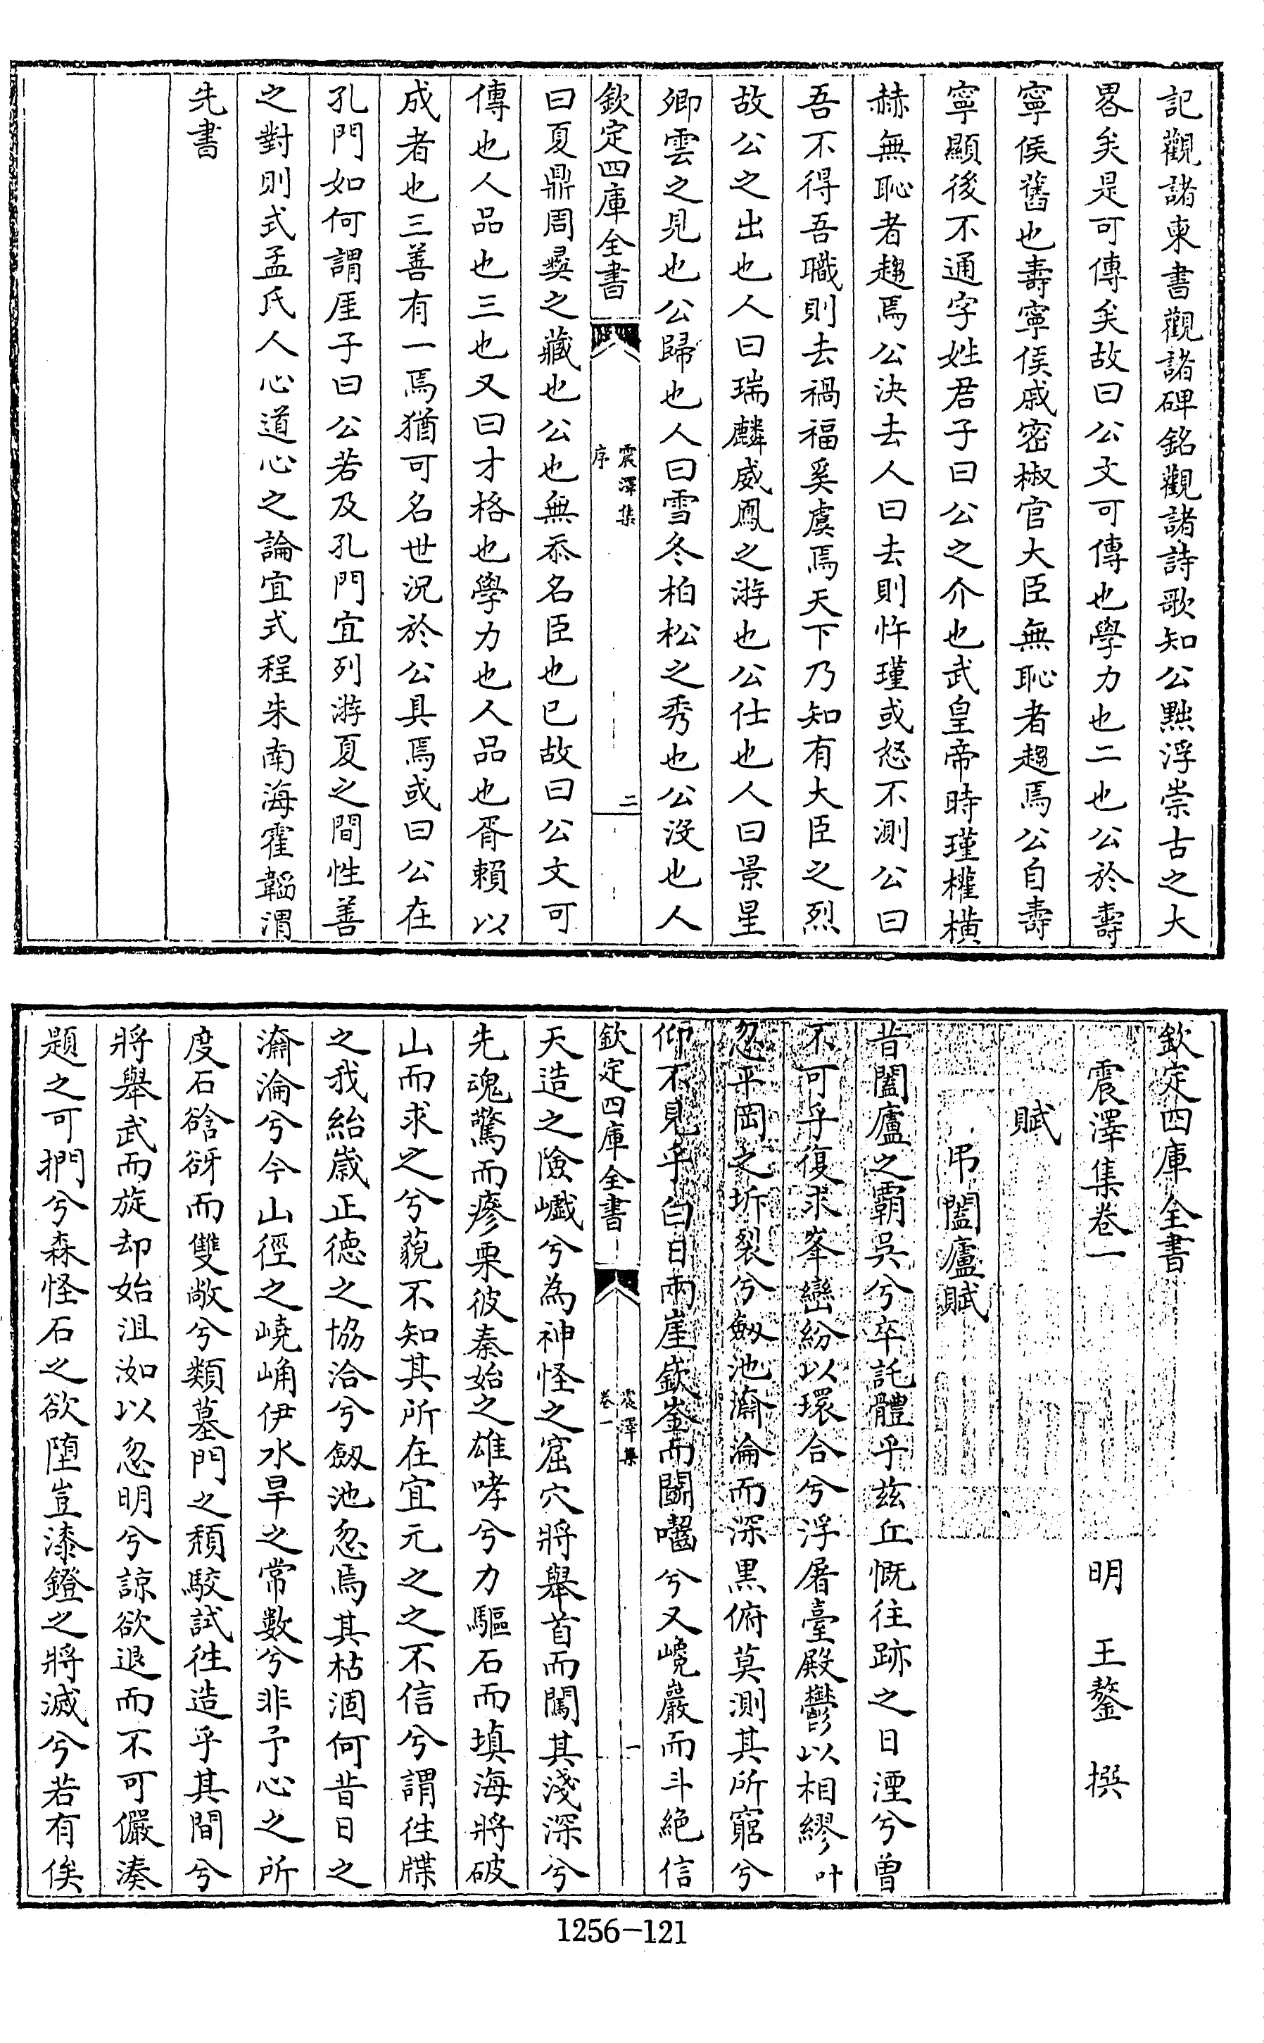 記觀諸柬書觀諸碑銘觀諸詩歌知公黜浮崇古之大
畧矣是可傳矣故曰公文可傳也學力也二也公於壽
寧侯舊也壽寧侯戚密椒宮大臣無恥者趨焉公自壽
寧顯後不通字姓君子曰公之介也武皇帝時瑾權橫
赫無恥者趨焉公決去人曰去則忤瑾或怒不測公曰
吾不得吾職則去禍福奚虞焉天下乃知有大臣之烈
故公之出也人曰瑞麟威鳳之游也公仕也人曰景星
卿雲之見也公歸也人曰雪冬柏松之秀也公沒也人
欽定四庫全書
震澤集
序
二
曰夏鼎周彝之藏也公也無忝名臣也已故曰公文可
傳也人品也三也又曰才格也學力也人品也胥賴以
成者也三善有一焉猶可名世況於公具焉或曰公在
孔門如何謂厓子曰公若及孔門宜列游夏之間性善
之對則式孟氏人心道心之論宜式程朱南海霍韜渭
先書
欽定四庫全書
震澤集卷一
明 王鏊 撰
賦
弔闔廬賦
昔闔廬之霸吳兮卒託體乎兹丘慨往跡之日湮兮曾
不可乎復求峯巒紛以環合兮浮屠臺殿鬱以相繆叶
忽平岡之坼裂兮劔池瀹淪而深黒俯莫測其所窮兮
仰不見乎白日兩崖嶔崟而鬭囓兮又巉巖而斗絶信
欽定四庫全書
震澤集
卷一
一
天造之險巇兮為神怪之窟穴將舉首而闖其淺深兮
先魂驚而瘮栗彼秦始之雄哮兮力驅石而填海將破
山而求之兮藐不知其所在宜元之之不信兮謂徃牒
之我紿歲正德之協洽兮劔池忽焉其枯涸何昔日之
瀹淪兮今山徑之嶢崅伊水旱之常數兮非予心之所
度石谽谺而雙敞兮類墓門之頹駮試徃造乎其間兮
將舉武而旋却始沮洳以忽明兮諒欲退而不可儼湊
題之可捫兮森怪石之欲墮豈漆鐙之將滅兮若有俟
1256-121